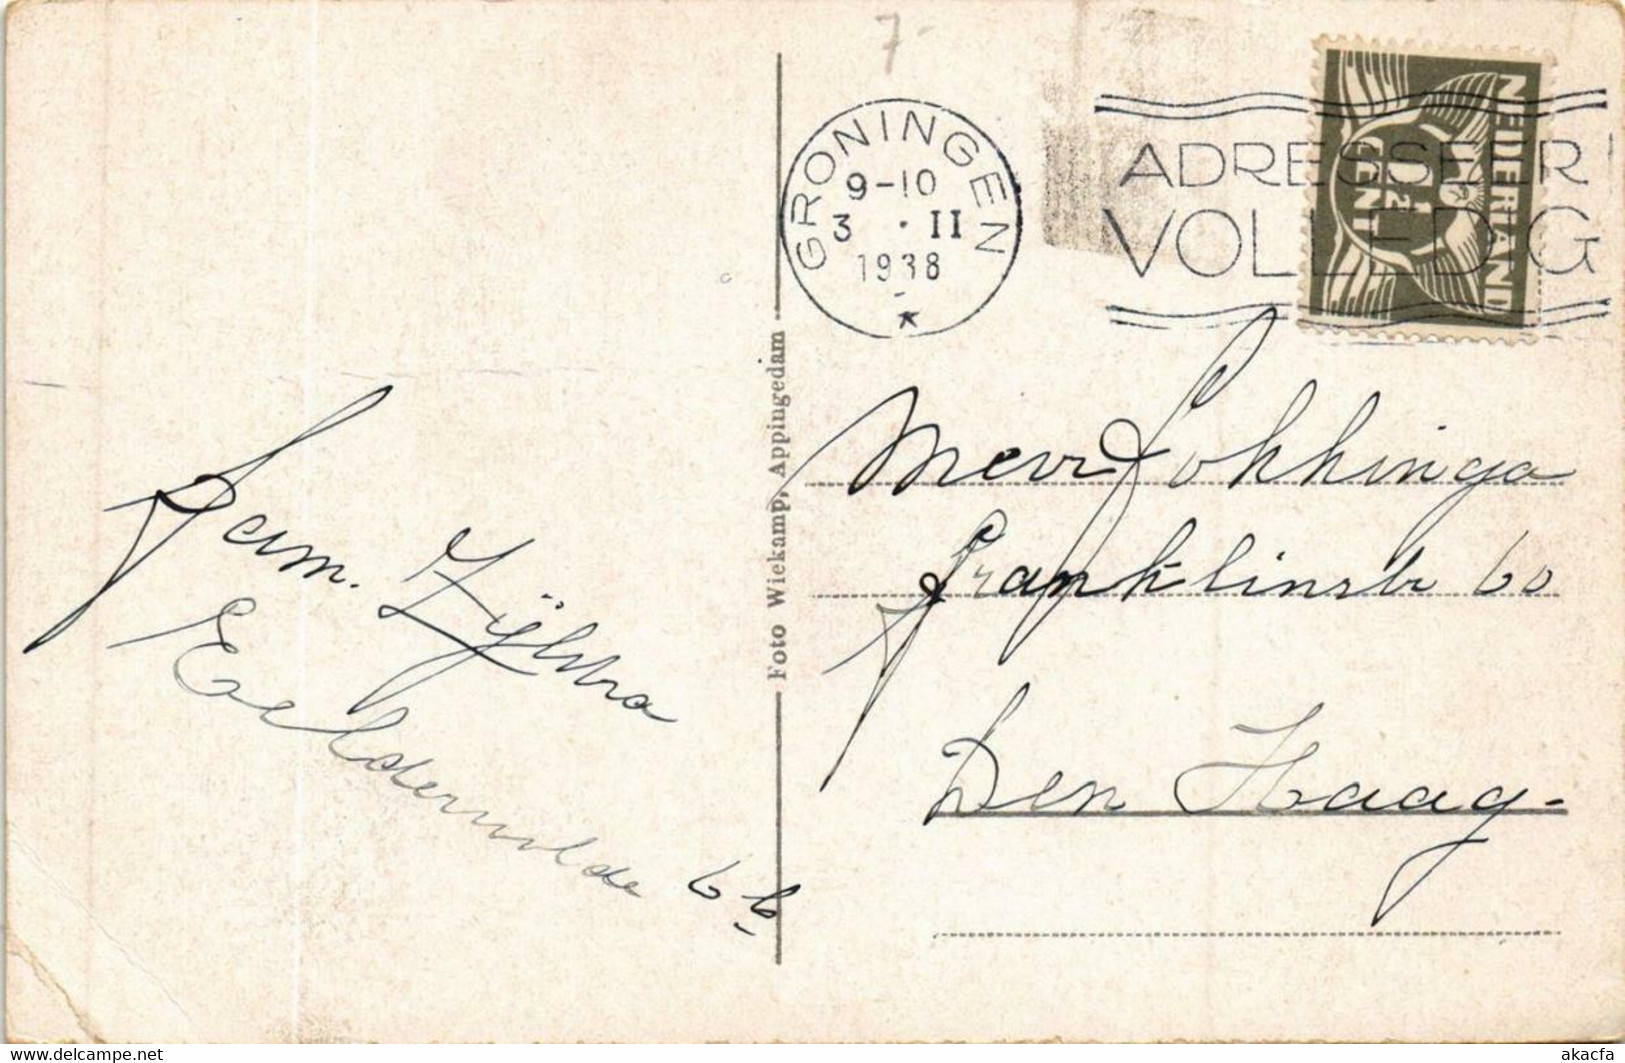 7-
GRONINGEN
9-10
3 · II
1938
ADRESSEER
VOLLEDIG
NEDERLAND
1½
CENT
Fam. Zijlstra
Eelderwolde 6b
Foto Wiekamp, Appingedam
Mevr Fokkinga
Franklinstr 60
Den Haag.
delcampe.net
akacfa